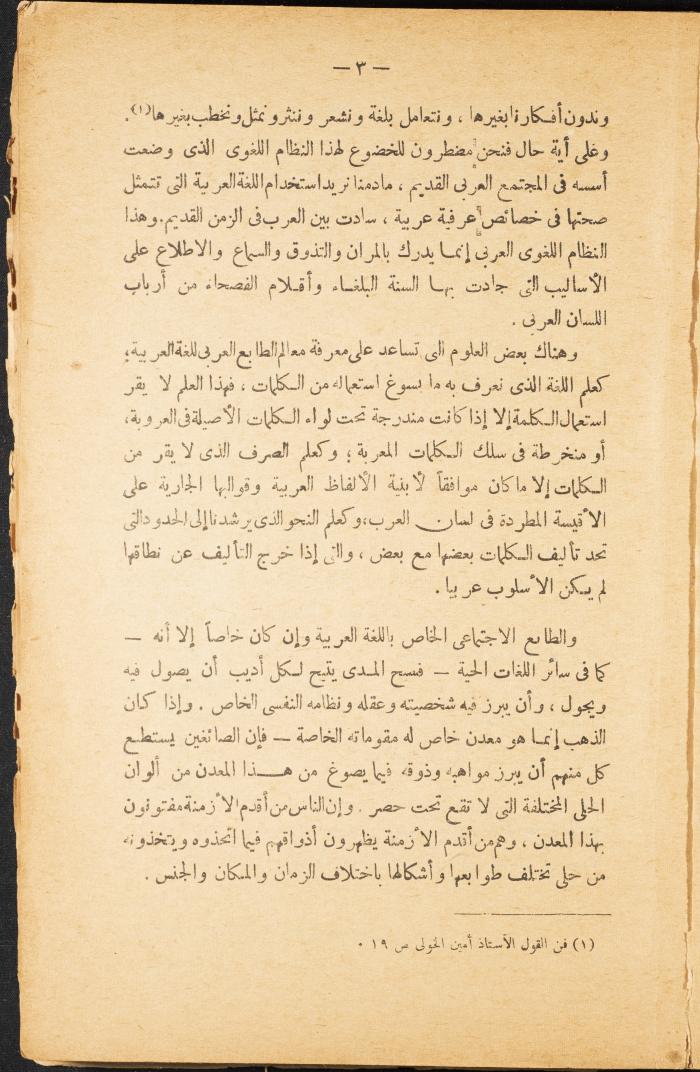 — ٣ —
وندون أفكارنا بغيرها ، ونتعامل بلغة ونشعر وننثر ونمثل ونخطب بغيرها(١).
وعلى أية حال فنحن مضطرون للخضوع لهذا النظام اللغوى الذى وضعت
أسسه فى المجتمع العربى القديم ، مادمنا نريد استخدام اللغة العربية التى تتمثل
صحتها فى خصائص عرفية عربية ، سادت بين العرب فى الزمن القديم. وهذا
النظام اللغوى العربى إنما يدرك بالمران والتذوق والسماع والاطلاع على
الأساليب التى جادت بها السنة البلغاء وأقلام الفصحاء من أرباب
اللسان العربى .
وهناك بعض العلوم التى تساعد على معرفة معالم الطابع العربى للغة العربية؛
كعلم اللغة الذى نعرف به ما يسوغ استعماله من الكلمات ، فهذا العلم لا يقر
استعمال الكلمة إلا إذا كانت مندرجة تحت لواء الكلمات الأصيلة فى العروبة،
أو منخرطة فى سلك الكلمات المعربة ؛ وكعلم الصرف الذى لا يقر من
الكلمات إلا ما كان موافقاً لأبنية الألفاظ العربية وقوالبها الجارية على
الأقيسة المطردة فى لسان العرب، وكعلم النحو الذى يرشدنا إلى الحدود التى
تحد تأليف الكلمات بعضها مع بعض ، والتى إذا خرج التأليف عن نطاقها
لم يكن الأسلوب عربيا .
والطابع الاجتماعى الخاص باللغة العربية وإن كان خاصاً إلا أنه —
كما فى سائر اللغات الحية — فسح المدى يتيح لكل أديب أن يصول فيه
ويجول ، وأن يبرز فيه شخصيته وعقله ونظامه النفسى الخاص . وإذا كان
الذهب إنما هو معدن خاص له مقوماته الخاصة — فإن الصائغين يستطيع
كل منهم أن يبرز مواهبه وذوقه فيما يصوغ من هذا المعدن من ألوان
الحلى المختلفة التى لا تقع تحت حصر . وإن الناس من أقدم الأزمنة مفتونون
بهذا المعدن ، وهم من أقدم الأزمنة يظهرون أذواقهم فيما اتخذوه ويتخذونه
من حلى تختلف طوابعها وأشكالها باختلاف الزمان والمكان والجنس .
(١) فن القول الأستاذ أمين الخولى ص ١٩ .